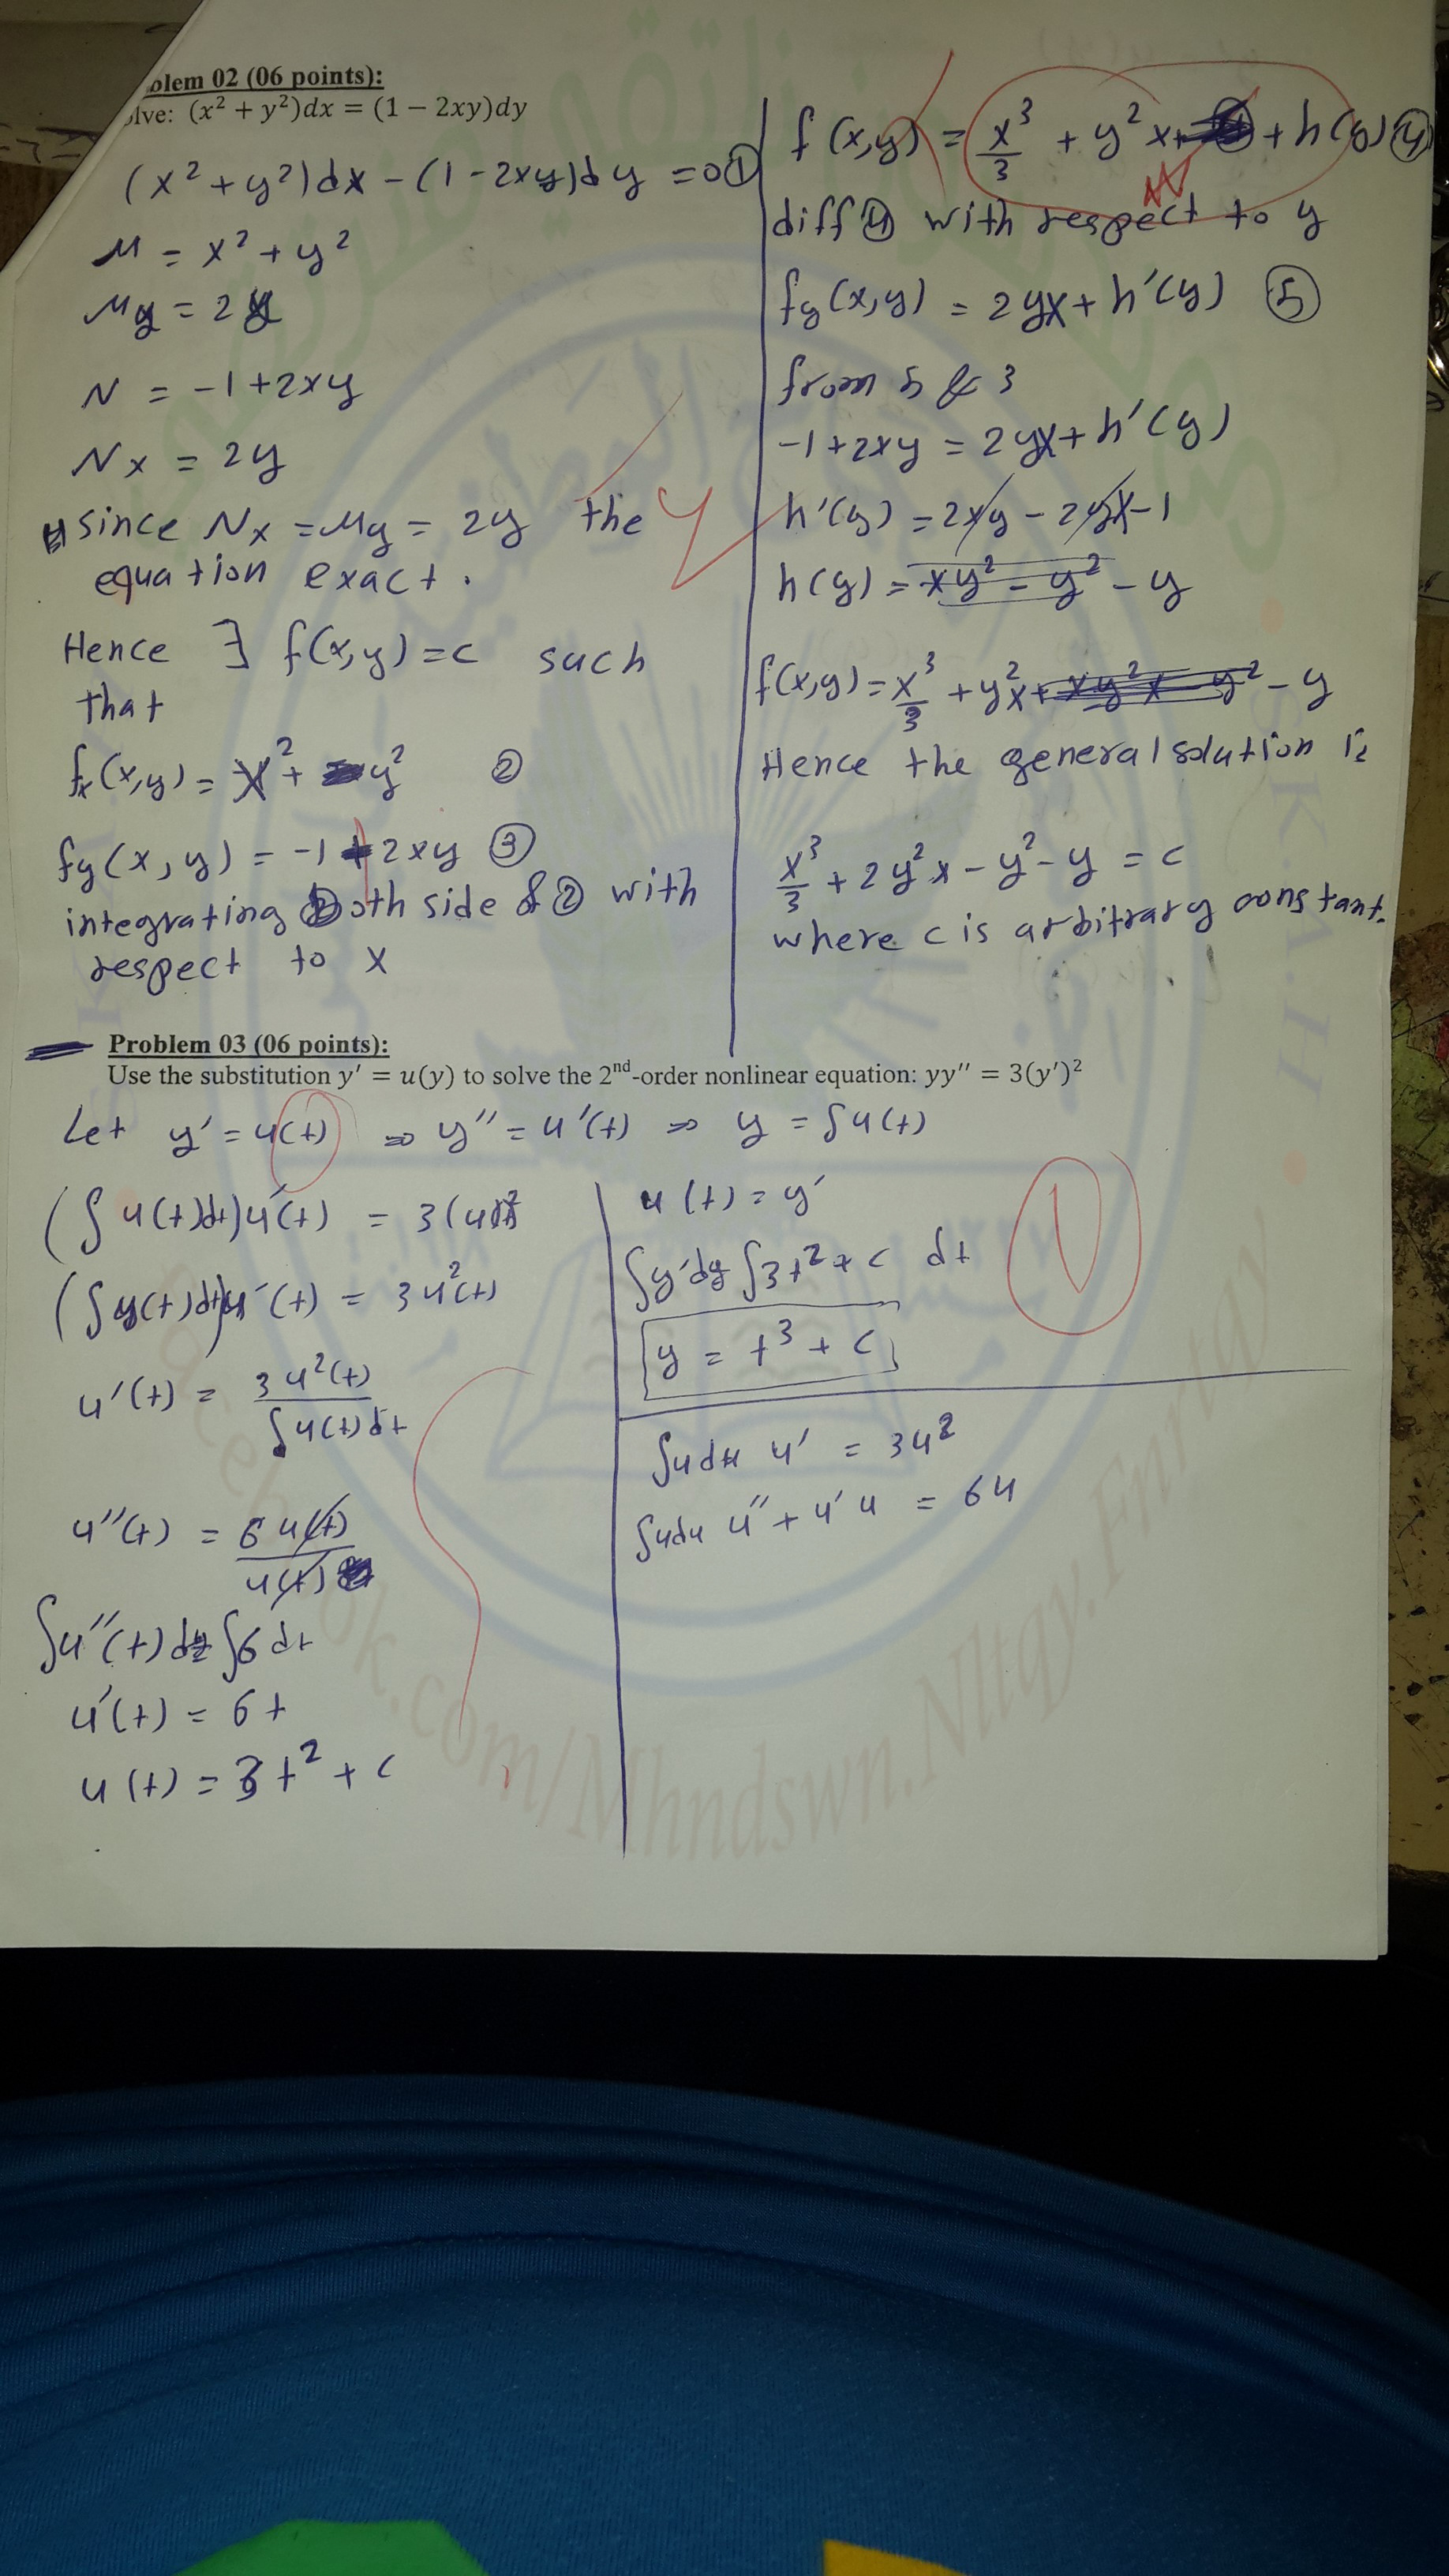 blem 02 (06 points):
lve: (x² + y²)dx = (1 − 2xy)dy
(x² + y²)dx − (1 − 2xy)dy = 0 ①
M = x² + y²
My = 2y
N = −1 + 2xy
Nx = 2y
since Nx = My = 2y the
equation exact.
Hence ∃ f(x,y) = c such
that
fx(x,y) = x² + y² ②
fy(x,y) = −1 + 2xy ③
integrating both side of ② with
respect to x
f(x,y) = x³/3 + y²x + h(y) ④
diff ④ with respect to y
fy(x,y) = 2yx + h′(y) ⑤
from 5 & 3
−1 + 2xy = 2yx + h′(y)
h′(y) = 2xy − 2yx − 1
h(y) = xy² − y² − y
f(x,y) = x³/3 + y²x + xy²x − y² − y
Hence the general solution is
x³/3 + 2y²x − y² − y = c
where c is arbitrary constant.
Problem 03 (06 points):
Use the substitution y′ = u(y) to solve the 2nd-order nonlinear equation: yy′′ = 3(y′)²
Let y′ = u(t) ⇒ y″ = u′(t) ⇒ y = ∫u(t)
(∫ u(t)dt) u′(t) = 3(u(t))²
(∫ u(t)dt) u′(t) = 3u²(t)
u′(t) = 3u²(t) / ∫u(t)dt
u″(t) = 6u(t) / u(t)
∫u″(t)dt = ∫6dt
u′(t) = 6t
u(t) = 3t² + c
u(t) = y′
∫y′dy ∫3t² + c dt
y = t³ + c
∫udu u′ = 3u²
∫udu u″ + u′u = 6u
SK.A.H
facebook.com/Mhndswn.Nltqy.Fnrtqy